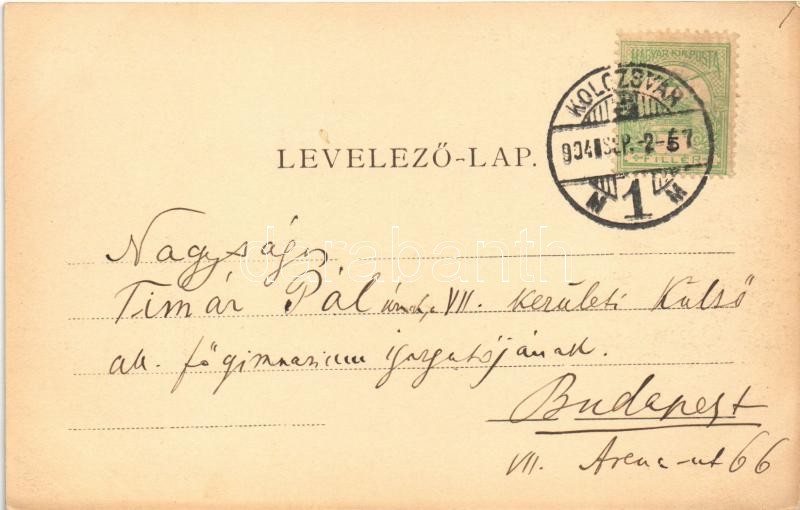 MAGYAR KIR. POSTA
5
FILLÉR
KOLOZSVÁR
904 SEP. -2
1
LEVELEZŐ-LAP.
darabanth
Nagyságos
Timár Pál úrnak, VII. kerületi Külső
áll. főgimnazium igazgatójának.
Budapest
VII. Arena-út 66